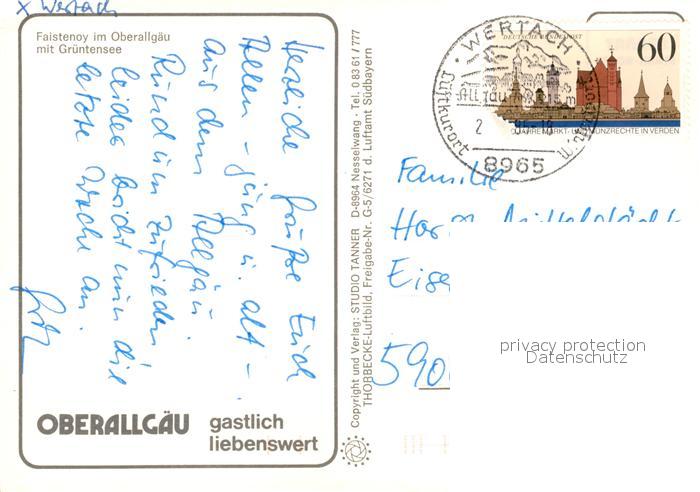 x Wertach
Faistenoy im Oberallgäu
mit Grüntensee
Herzliche Grüße Euch
Allen - jung u. alt -
aus dem Allgäu.
Rundum zufrieden
leider bricht nun die
letzte Woche an.
OBERALLGÄU gastlich
liebenswert
Copyright und Verlag: STUDIO TANNER D-8964 Nesselwang · Tel. 0 83 61 / 777
THORBECKE-Luftbild, Freigabe-Nr. G-5/6271 d. Luftamt Südbayern
DEUTSCHE BUNDESPOST
60
JAHRE MARKT- UND MÜNZRECHTE IN VERDEN
WERTACH
Luftkurort
8965
Familie
590
privacy protection
Datenschutz